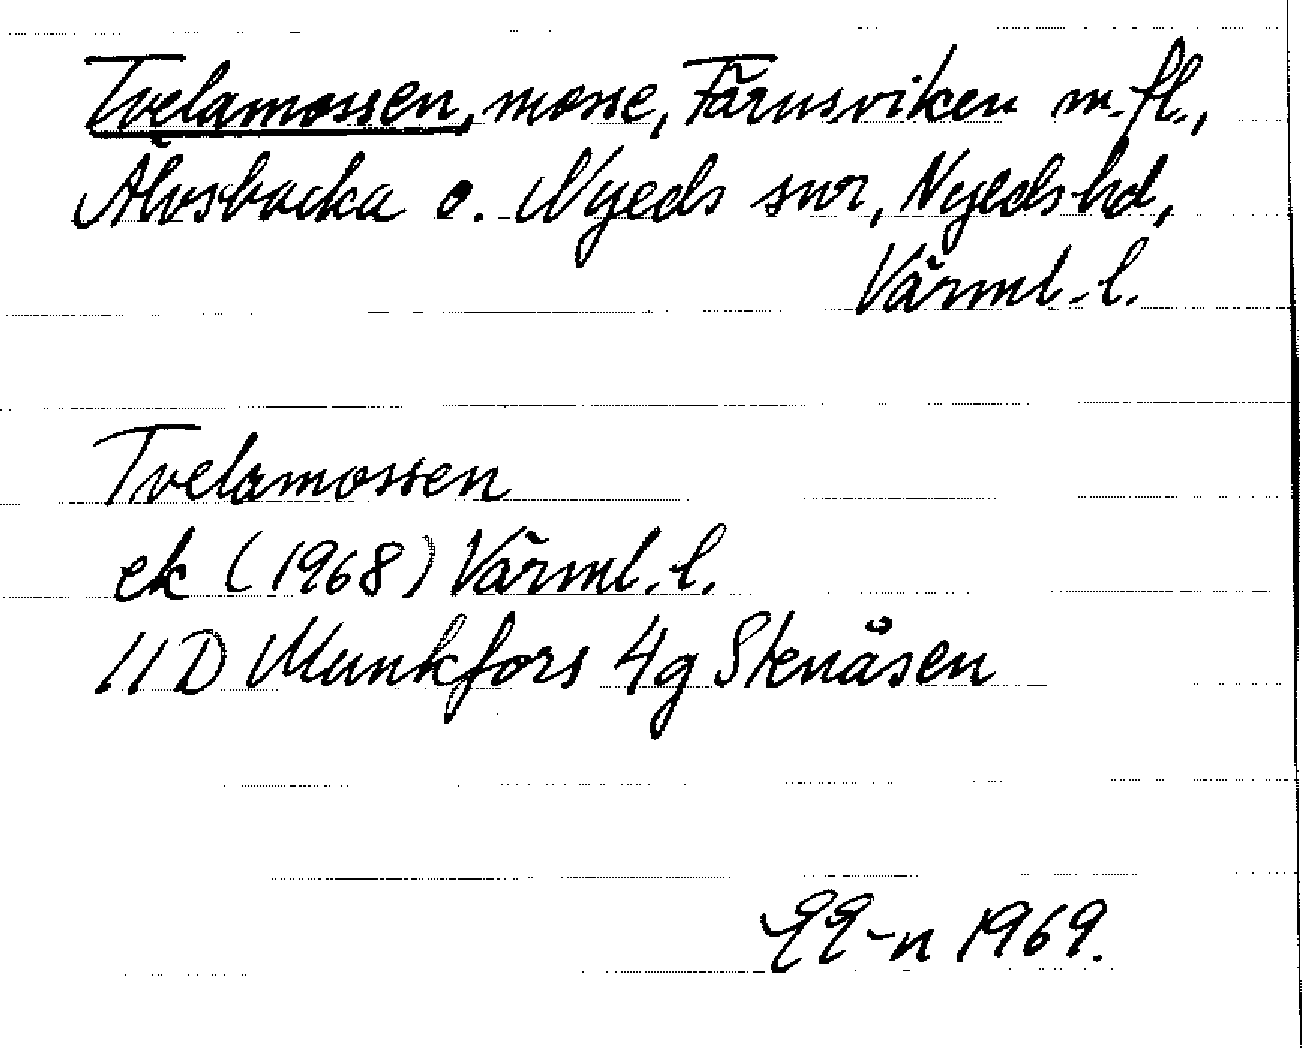 Tvelamossen, mosse, Färnsviken m. fl.,
Älvsbacka o. Nyeds snr, Nyeds hd,
Värml. l.
Tvelamossen
ek (1968) Värml. l.
11D Munkfors 4g Stenåsen
EE-n 1969.